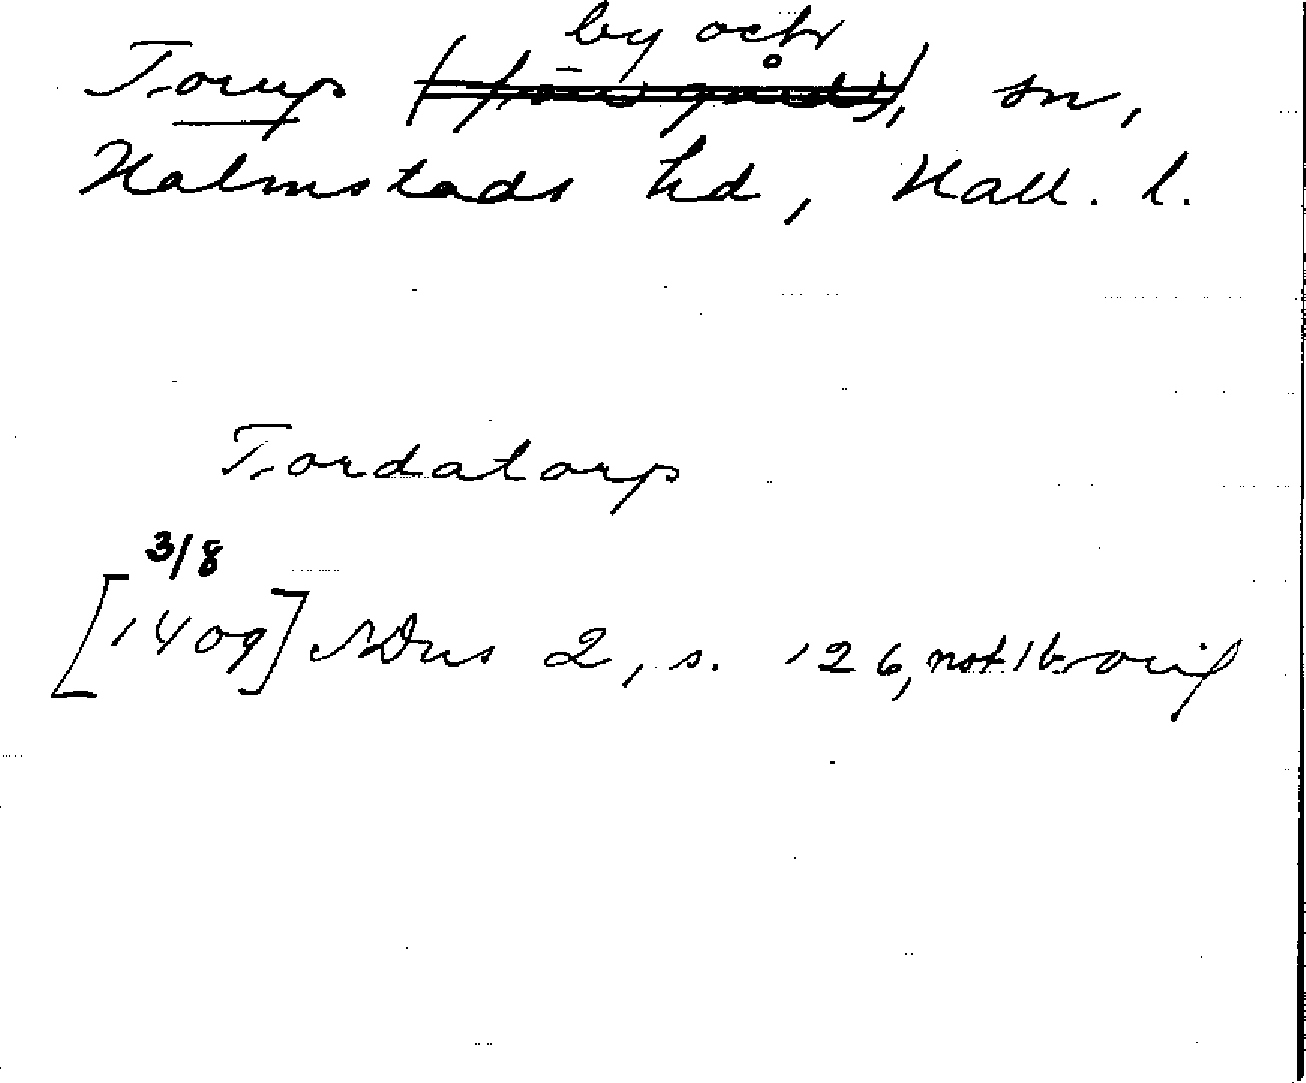 by och
Torup (prästgård), sn,
Halmstads hd, Hall. l.
Tordatorp
3/8
[1409] SDns 2, s. 126, not 1b. orig